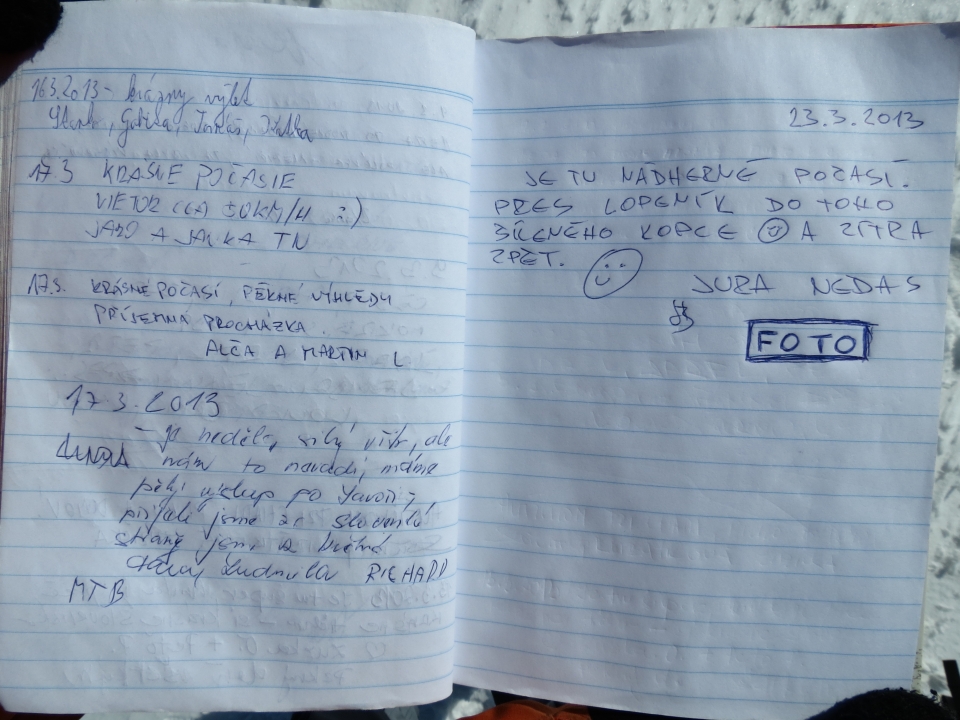 16.3.2013 - krásny výlet
17.3 KRÁSNE POČASIE
VIETOR 50KM/H :)
JANO A JANKA TN
17.3. KRÁSNÉ POČASÍ, PĚKNÉ VÝHLEDY
PŘÍJEMNÁ PROCHÁZKA.
ALČA A MARTIN L
17.3.2013
- je neděle, silný vítr, ale
nám to nevadí, máme
pěkný výstup po
přijeli jsme ze slovenské
strany jsme z
Ludmila RICHARD
MTB
23.3.2013
JE TU NÁDHERNÉ POČASÍ.
PŘES LOPENÍK DO TOHO
ŠÍLENÉHO KOPCE ☺ A ZÍTRA
ZPĚT. ☺
JURA NEDAS
FOTO